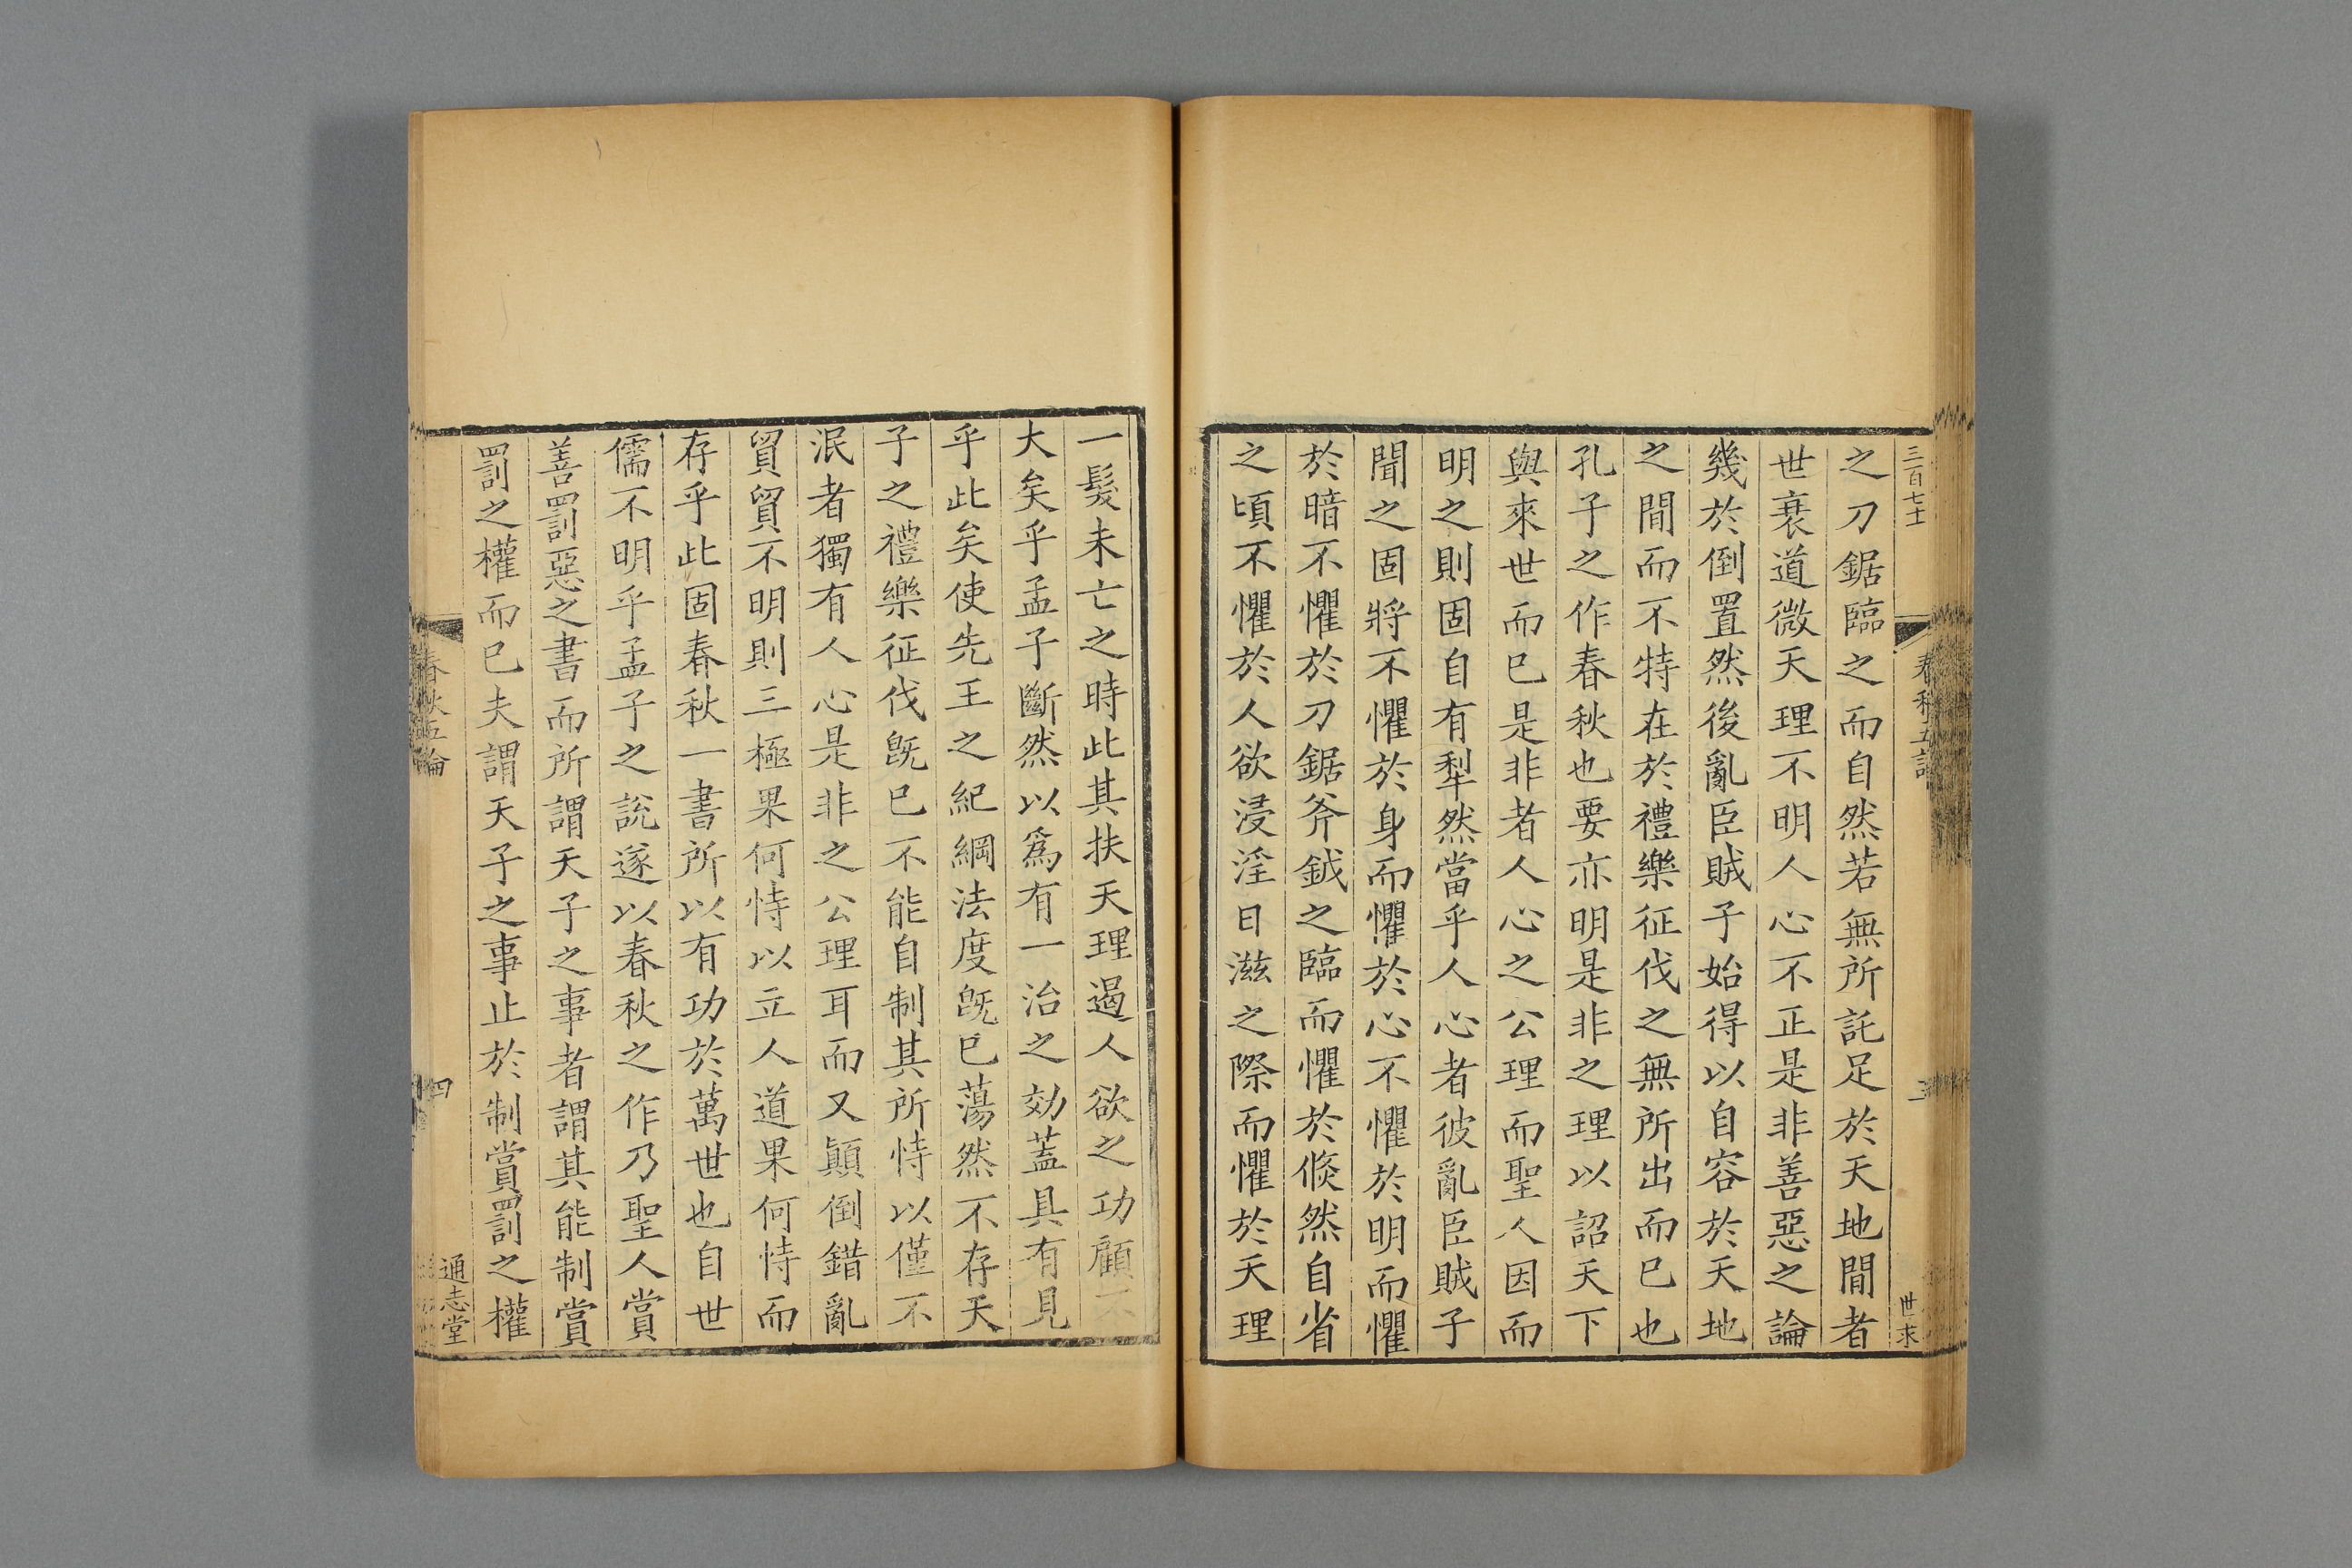 三百七十
春秋五論
三
世求
之刀鋸臨之而自然若無所託足於天地間者
世衰道微天理不明人心不正是非善惡之論
幾於倒置然後亂臣賊子始得以自容於天地
之間而不特在於禮樂征伐之無所出而已也
孔子之作春秋也要亦明是非之理以詔天下
與來世而已是非者人心之公理而聖人因而
明之則固自有犁然當乎人心者彼亂臣賊子
聞之固將不懼於身而懼於心不懼於明而懼
於暗不懼於刀鋸斧鉞之臨而懼於倐然自省
之頃不懼於人欲浸淫日滋之際而懼於天理
一髮未亡之時此其扶天理遏人欲之功顧不
大矣乎孟子斷然以爲有一治之効蓋具有見
乎此矣使先王之紀綱法度旣已蕩然不存天
子之禮樂征伐旣已不能自制其所恃以僅不
泯者獨有人心是非之公理耳而又顚倒錯亂
貿貿不明則三極果何恃以立人道果何恃而
存乎此固春秋一書所以有功於萬世也自世
儒不明乎孟子之說遂以春秋之作乃聖人賞
善罰惡之書而所謂天子之事者謂其能制賞
罰之權而已夫謂天子之事止於制賞罰之權
春秋五論
四
通志堂